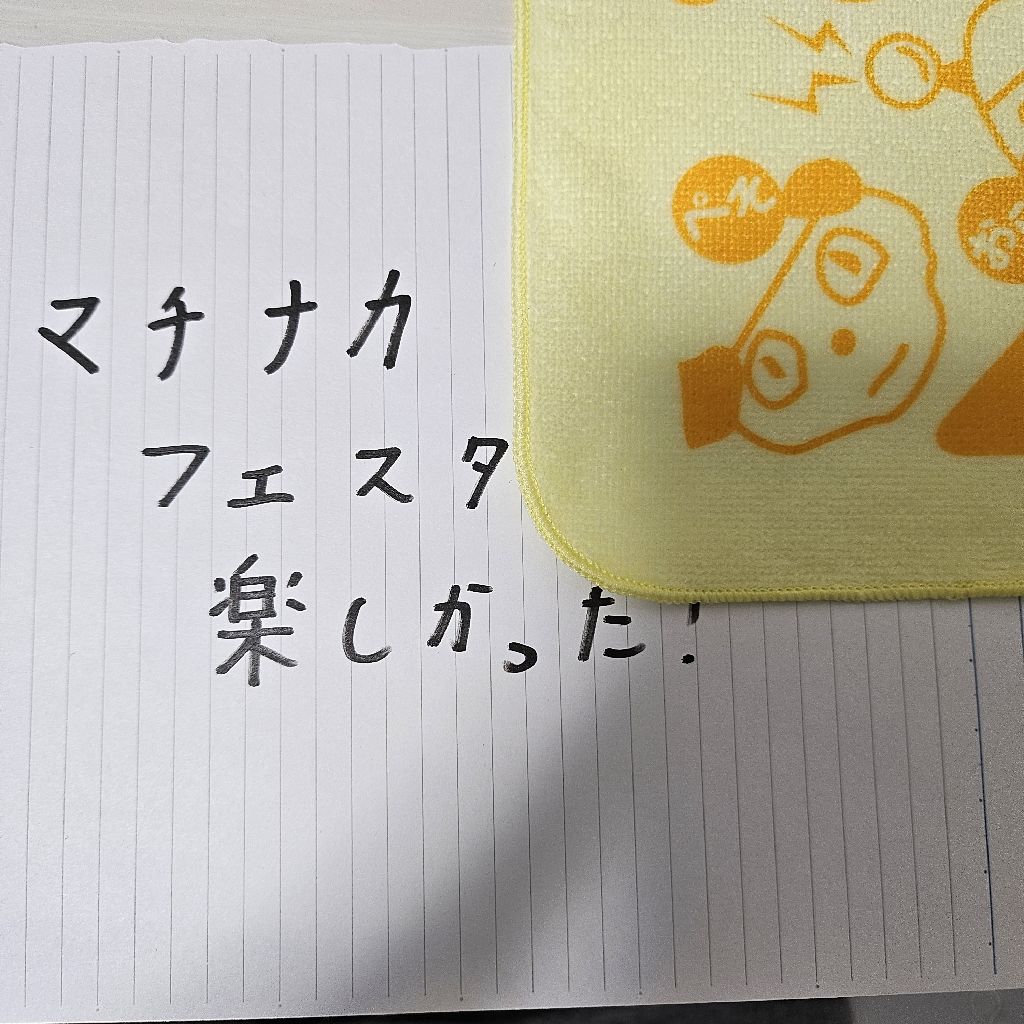 マチナカ
フェスタ
楽しかった!